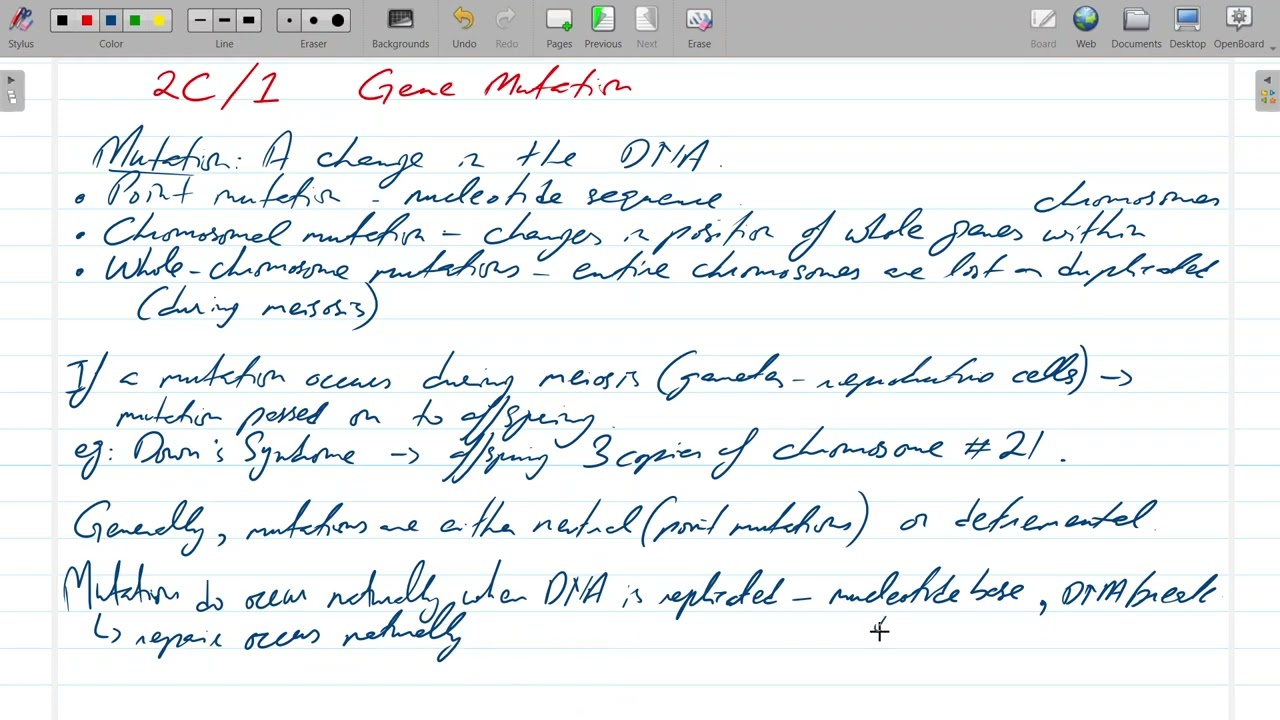 Stylus
Color
Line
Eraser
Backgrounds
Undo
Redo
Pages
Previous
Next
Erase
Board
Web
Documents
Desktop
OpenBoard
2C/1 Gene Mutation
Mutation: A change in the DNA.
• Point mutation - nucleotide sequence
chromosomes
• Chromosomel mutation - changes in position of whole genes within
• Whole-chromosome mutations - entire chromosomes are lost or duplicated
(during meisosis)
If a mutation occurs during meiosis (gametes - reproductive cells) →
mutation passed on to offspring.
eg: Down's Syndrome → offspring 3 copies of chromosome #21.
Generally, mutations are either neutral (point mutations) or detremental.
Mutation do occur naturally when DNA is replicated - nucleotide base, DNA break
↳ repair occurs naturally